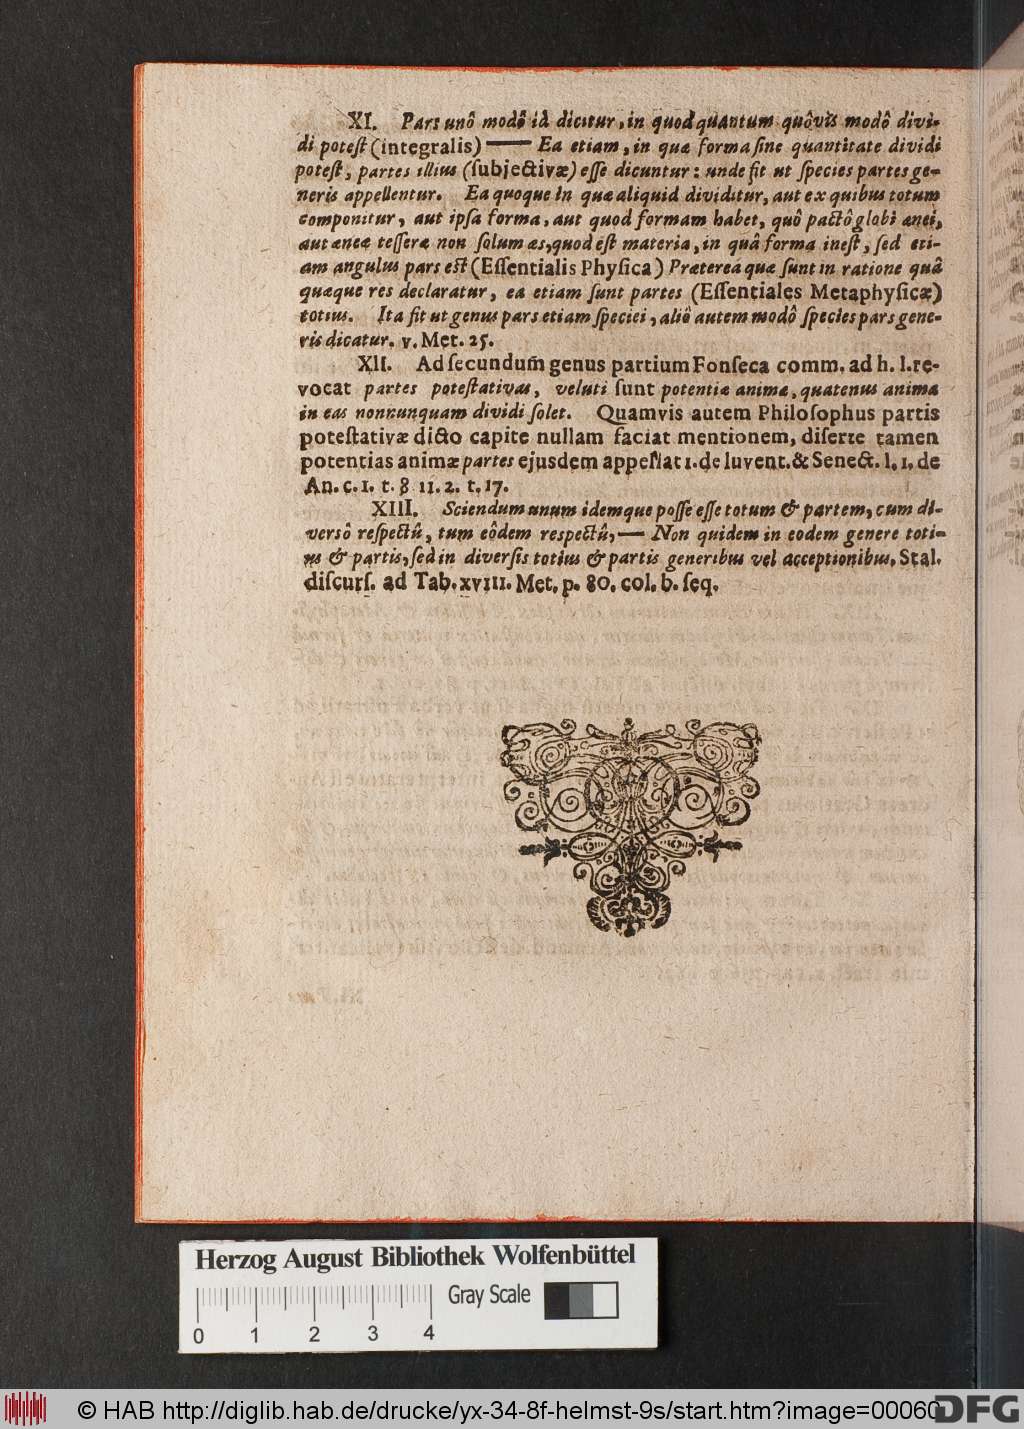 XI. Pars unô modô id dicitur, in quod quantum quôvis modô divi-
di potest (integralis) —— Ea etiam, in quæ forma sine quantitate dividi
potest, partes illius (subjectivæ) esse dicuntur: unde fit ut species partes ge-
neris appellentur. Ea quoque in quæ aliquid dividitur, aut ex quibus totum
componitur, aut ipsa forma, aut quod formam habet, quô pactô globi ænei,
aut æneæ tesseræ non solum æs, quod est materia, in quâ forma inest, sed eti-
am angulus pars est (Essentialis Physica) Præterea quæ sunt in ratione quâ
quæque res declaratur, ea etiam sunt partes (Essentiales Metaphysicæ)
totius. Ita fit ut genus pars etiam speciei, aliô autem modô species pars gene-
ris dicatur. v. Met. 25.
XII. Ad secundum̃ genus partium Fonseca comm. ad h. l. re-
vocat partes potestativas, veluti sunt potentiæ animæ, quatenus anima
in eas nonnunquam dividi solet. Quamvis autem Philosophus partis
potestativæ dicto capite nullam faciat mentionem, diserte tamen
potentias animæ partes ejusdem appellat 1. de Iuvent. & Senect. l. 1. de
An. c. 1. t. 8 11. 2. t. 17.
XIII. Sciendum unum idemque posse esse totum & partem, cum di-
versô respectû, tum eôdem respectû, — Non quidem in eodem genere toti-
us & partis, sed in diversis totius & partis generibus vel acceptionibus. Stal.
discurs. ad Tab. xviii. Met. p. 80. col. b. seq.
Herzog August Bibliothek Wolfenbüttel
Gray Scale
0 1 2 3 4
© HAB http://diglib.hab.de/drucke/yx-34-8f-helmst-9s/start.htm?image=00060
DFG